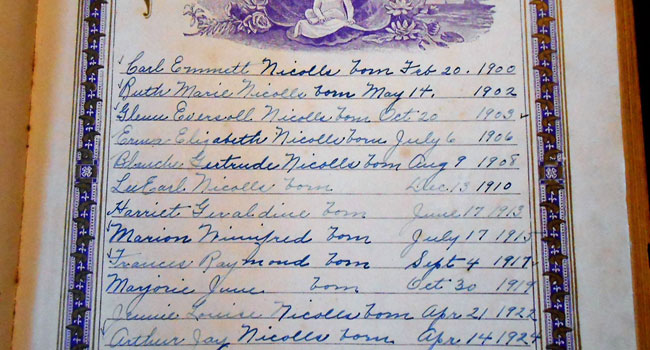 Carl Emmett Nicolls born Feb 20. 1900
Ruth Marie Nicolls born May 14. 1902
Glenn Eversoll Nicolls born Oct 20 1903
Erma Elizabeth Nicolls born July 6 1906
Blanch Gertrude Nicolls born Aug 9 1908
LeeEarl Nicolls born Dec. 13 1910
Harriet Geraldine born June 17 1913
Marion Winifred born July 17 1915
Frances Raymond born Sept 4 1917
Marjorie June born Oct 30 1919
Jennie Louise Nicolls born Apr 21 1922
Arthur Jay Nicolls born Apr 14 1924